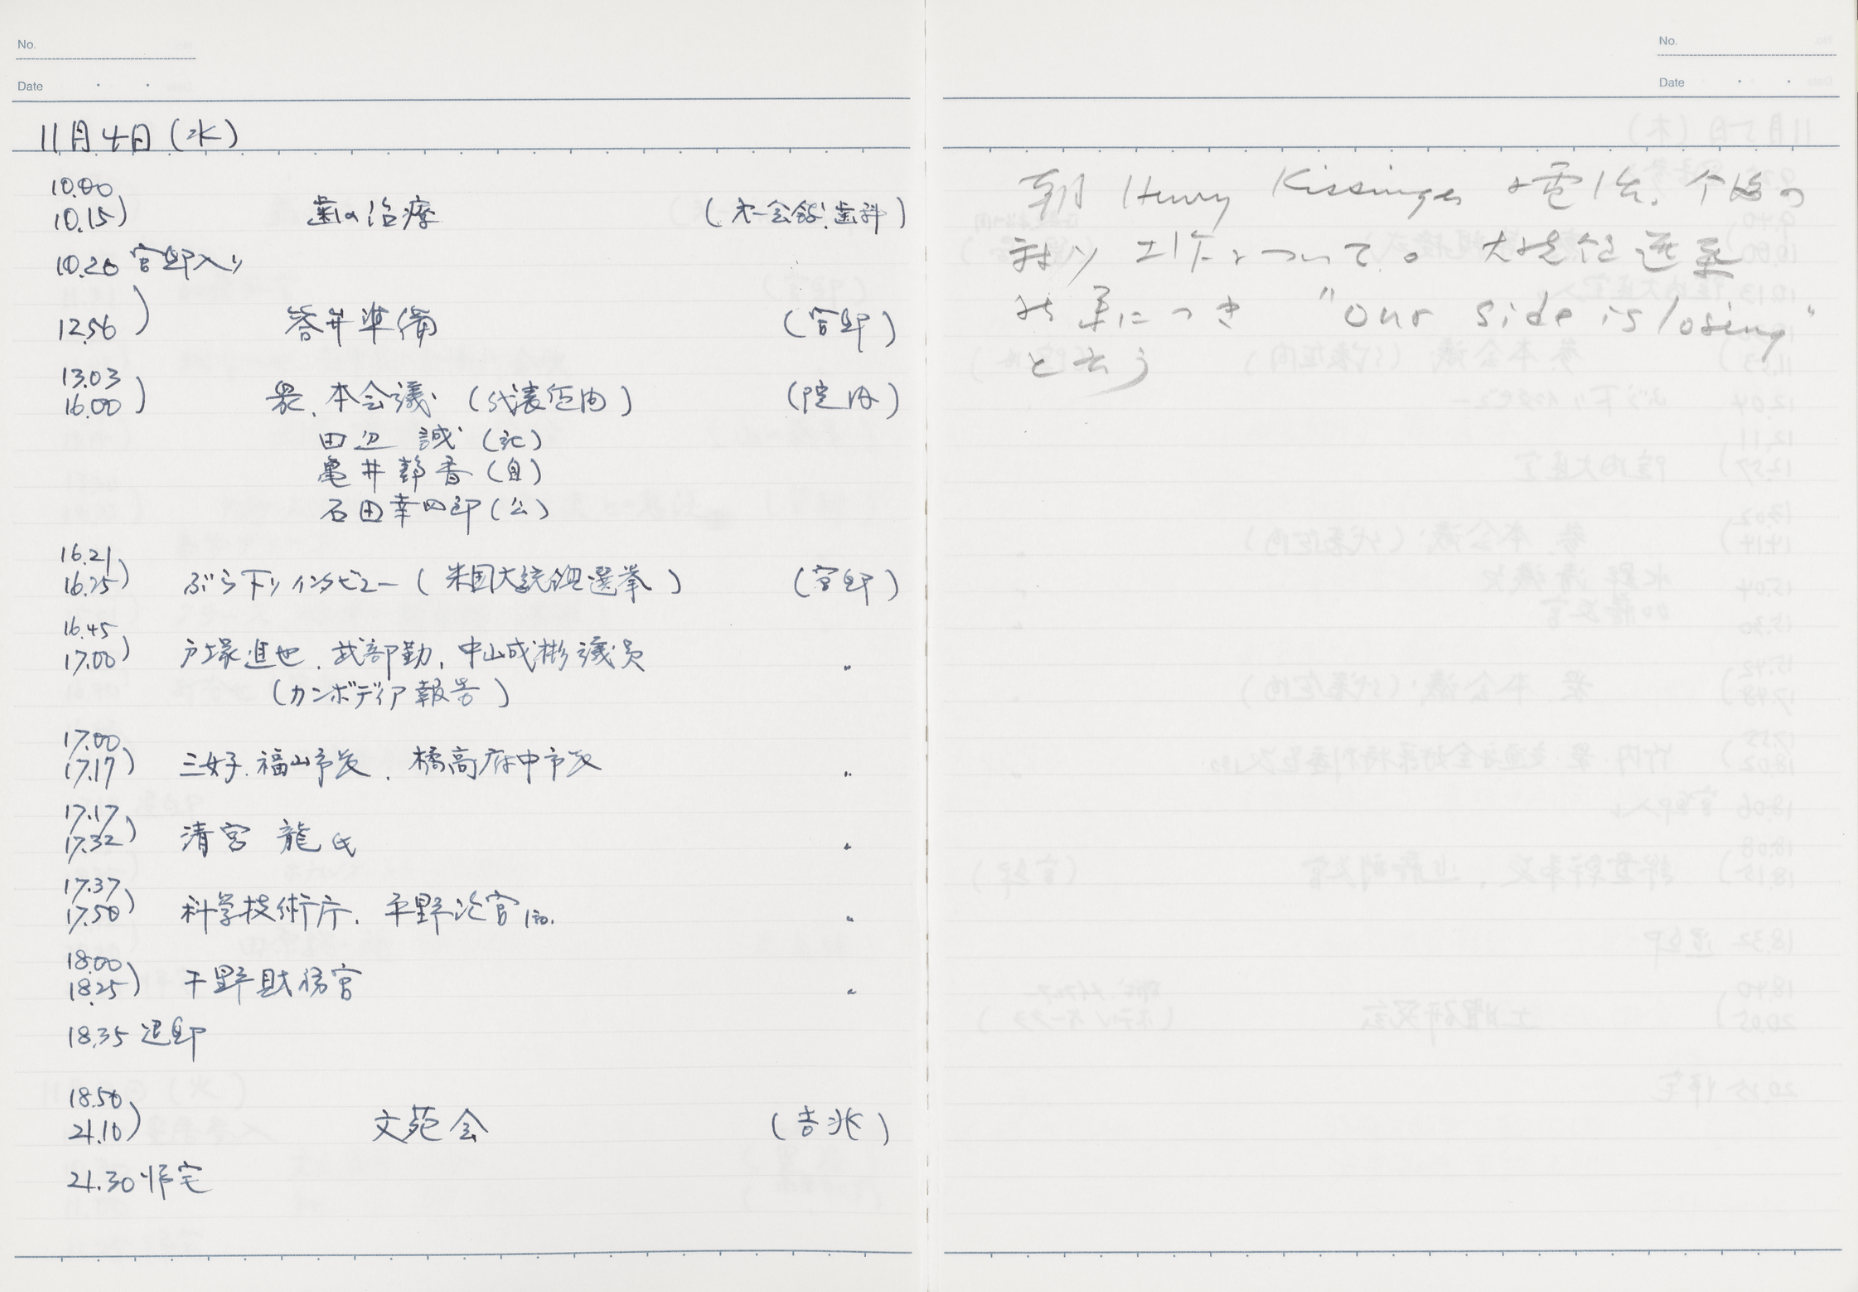 No.
Date
11月4日(水)
10.00
10.15) 歯の治療 (第一会館歯科)
10.20 官邸入り
)
12.56 答弁準備 (官邸)
13.03
16.00) 衆、本会議 (代表質問) (院内)
田辺 誠 (社)
亀井静香 (自)
石田幸四郎 (公)
16.21
16.25) ぶら下りインタビュー (米国大統領選挙) (官邸)
16.45
17.00) 戸塚進也、武部勤、中山成彬議員 〃
(カンボディア報告)
17.00
17.17) 三好 福山市長、橘高府中市長 〃
17.17
17.32) 清宮 龍氏 〃
17.37
17.50) 科学技術庁、平野次官 〃
18.00
18.25) 千野財務官 〃
18.35 退邸
18.50
21.10) 文苑会 (吉兆)
21.30 帰宅
No.
Date
朝 Henry Kissinger 電話、今後の
訪ソ について。大統領選挙
結果につき "Our side is losing"
と云う